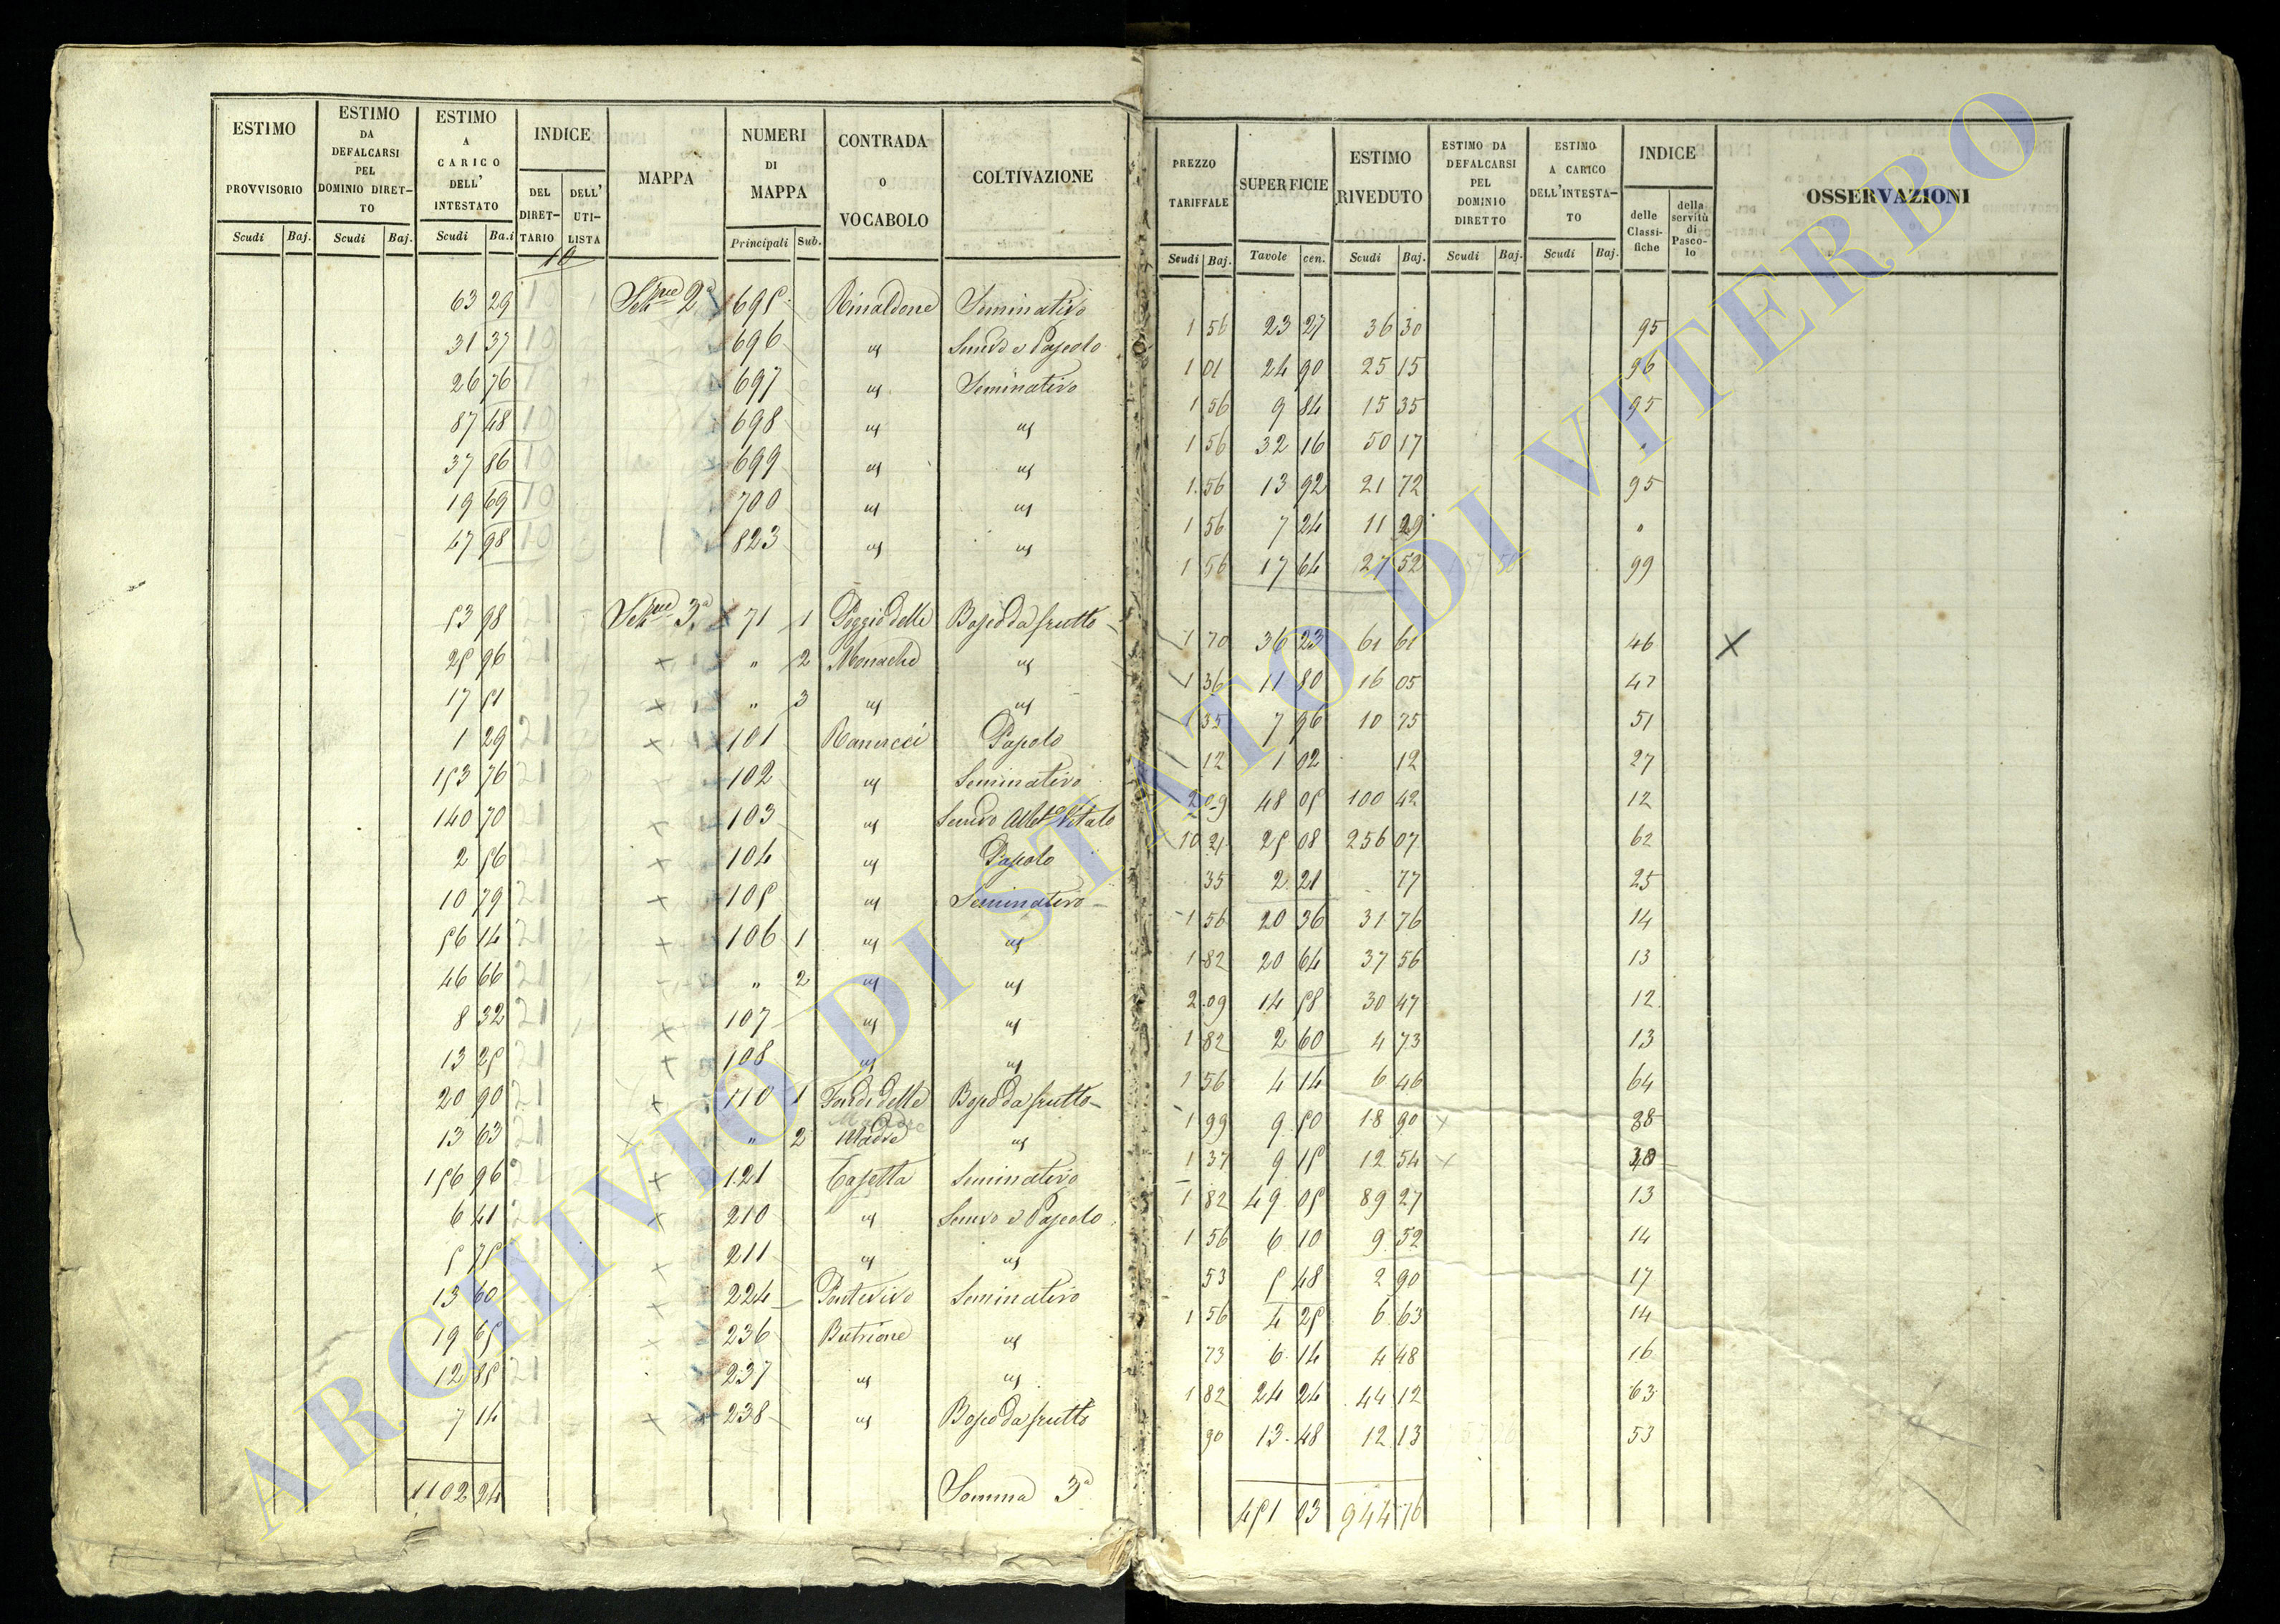 ESTIMO PROVVISORIO Scudi Baj.
ESTIMO DA DEFALCARSI PEL DOMINIO DIRETTO Scudi Baj.
ESTIMO A CARICO DELL' INTESTATO Scudi Ba.i
INDICE DEL DIRETTARIO DELL' UTILISTA
MAPPA
NUMERI DI MAPPA Principali Sub.
CONTRADA O VOCABOLO
COLTIVAZIONE
PREZZO TARIFFALE Scudi Baj.
SUPERFICIE Tavole cen.
ESTIMO RIVEDUTO Scudi Baj.
ESTIMO DA DEFALCARSI PEL DOMINIO DIRETTO Scudi Baj.
ESTIMO A CARICO DELL'INTESTATO Scudi Baj.
INDICE delle Classifiche della servitù di Pascolo
OSSERVAZIONI
10
63 29 10 695 Rinaldone Seminativo 1 56 23 27 36 30 95
31 37 10 696 " Semvo e Pascolo 1 01 24 90 25 15 96
26 76 10 697 " Seminativo 1 56 9 84 15 35 95
87 48 10 698 " " 1 56 32 16 50 17 "
37 86 10 699 " " 1 56 13 92 21 72 95
19 69 10 700 " " 1 56 7 24 11 29 "
47 98 10 823 " " 1 56 17 64 27 52 99
53 98 21 71 1 Poggio delle Bosco da frutto 1 70 36 23 61 61 46 X
25 96 21 " 2 Monache " 1 36 11 80 16 05 47
17 51 " 3 " " 1 35 7 96 10 75 51
1 29 21 101 Ranucci Pascolo 12 1 02 12 27
153 76 21 102 " Seminativo 2 09 48 05 100 42 12
140 70 21 103 " Semvo Vitato 10 21 25 08 256 07 62
2 56 21 104 " Pascolo 35 2 21 77 25
10 79 21 105 " Seminativo 1 56 20 36 31 76 14
56 14 21 106 1 " " 1 82 20 64 37 56 13
46 66 21 " 2 " " 2 09 14 58 30 47 12
8 32 21 107 " " 1 82 2 60 4 73 13
13 25 21 108 " " 1 56 4 14 6 46 64
20 90 21 110 1 delle Bosco da frutto 1 99 9 50 18 90 38
13 63 21 " 2 Madre " 1 37 9 15 12 54
156 96 121 Casetta Seminativo 1 82 49 05 89 27 13
6 41 21 210 " Semvo e Pascolo 1 56 6 10 9 52 14
5 75 211 " " 53 5 48 2 90 17
13 60 224 Pontevivo Seminativo 1 56 4 25 6 63 14
19 65 236 Butrione " 73 6 14 4 48 16
12 85 21 237 " " 1 82 24 24 44 12 63
7 14 21 238 " Bosco da frutto 90 13 48 12 13 53
1102 24 Somma 3a 451 03 944 76
ARCHIVIO DI STATO DI VITERBO